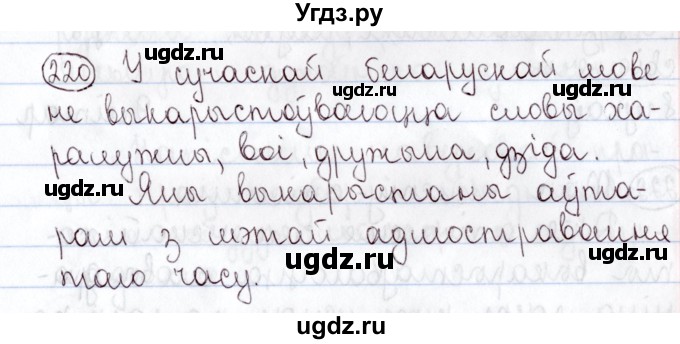 Угдз.ру
220 У сучаснай беларускай мове
не выкарыстоўваюцца словы ха-
ралужны, воі, дружына, дзіда.
Яны выкарыстаны аўта-
рам з мэтай адлюстравання
таго часу.
ugdz.ru
ugdz.ru
ugdz.ru
ugdz.ru
ugdz.ru
ugdz.ru
ugdz.ru
ugdz.ru